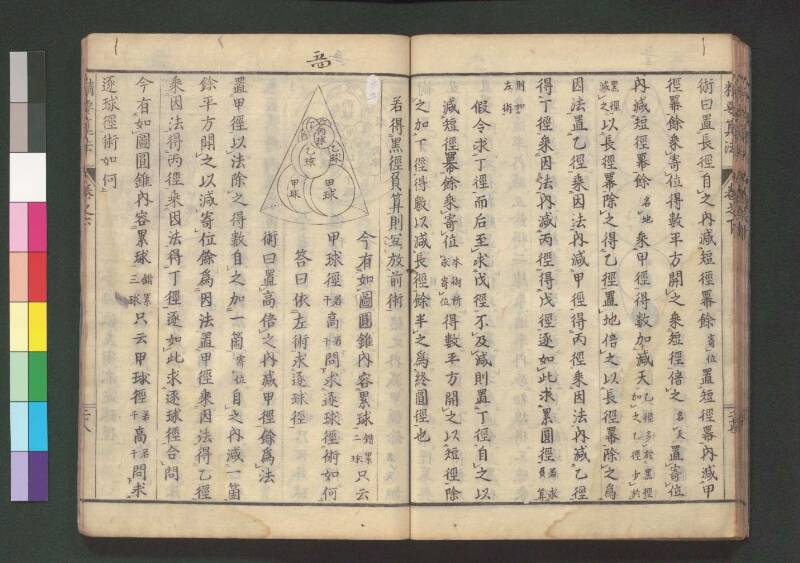 術曰置長徑自之內減短徑冪餘寄位置短徑冪內減甲
徑冪餘乘寄位得數平方開之乘短徑倍之名天置寄位
內減短徑冪餘名地乘甲徑得數加減天乙徑多於黑徑加之乙徑少於
黑徑減之以長徑冪除之得乙徑置地倍之以長徑冪除之為
因法置乙徑乘因法內減甲徑得丙徑乘因法內減乙徑
得丁徑乘因法內減丙徑得戊徑逐如此求累圓徑若求員算
則如左術
假令求丁徑而后至求戊徑不及減則置丁徑自之以
減短徑冪餘乘寄位本術所求寄位得數平方開之以短徑除
之加丁徑得數以減長徑餘半之為終圓徑也
若得黑徑負算則寫放前術
今有如圖圓錐內容累球錯累二球只云
甲球徑若干高若干問求逐球徑術如何
答曰依左術求逐球徑
術曰置高倍之內減甲徑餘為法
置甲徑以法除之得數自之加一箇寄位自之內減一箇
餘平方開之以減寄位餘為因法置甲徑乘因法得乙徑
乘因法得丙徑乘因法得丁徑逐如此求逐球徑合問
今有如圖圓錐內容累球錯累三球只云甲球徑若干高若干問求
逐球徑術如何
甲球
甲球
乙球
乙球
丙球
精要算法
卷之下